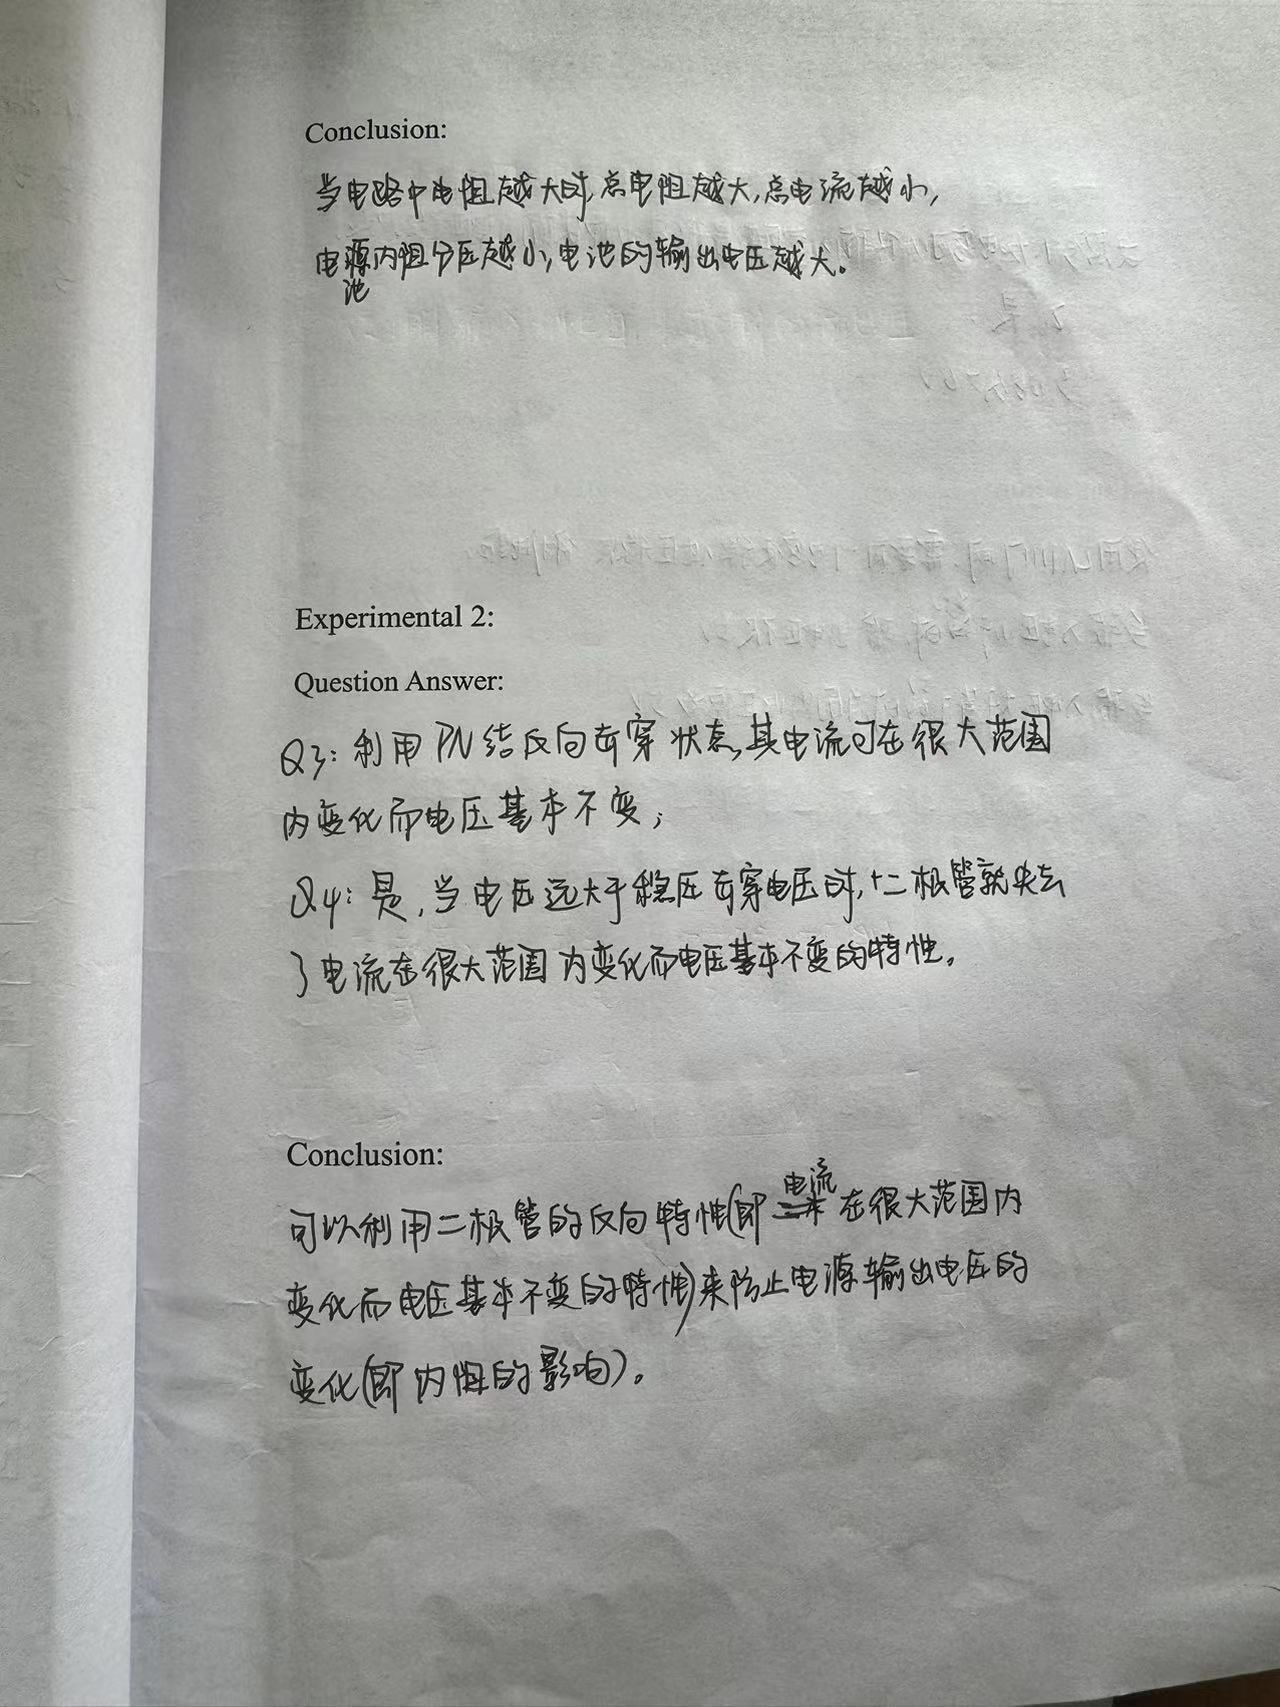 Conclusion:
当电路中电阻越大时,总电阻越大,总电流越小,
电源内阻分压越小,电池的输出电压越大。
池
Experimental 2:
Question Answer:
Q3: 利用PN结反向击穿状态,其电流可在很大范围
内变化而电压基本不变;
Q4: 是,当电压远大于稳压击穿电压时,二极管就失去
了电流在很大范围内变化而电压基本不变的特性。
Conclusion:
电流
可以利用二极管的反向特性(即在很大范围内
变化而电压基本不变的特性)来防止电源输出电压的
变化(即内阻的影响)。